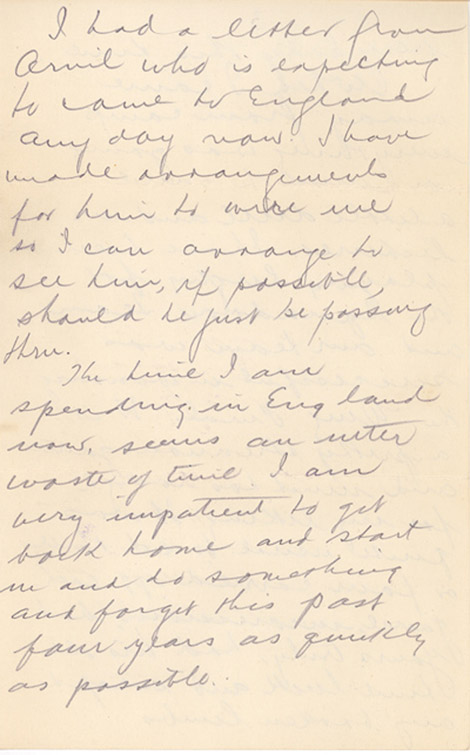 I had a letter from
Arvil who is expecting
to come to England
any day now. I have
made arrangements
for him to wire me
so I can arrange to
see him, if possible,
should he just be passing
thru.
The time I am
spending in England
now, seems an utter
waste of time. I am
very impatient to get
back home and start
in and do something
and forget this past
four years as quickly
as possible.